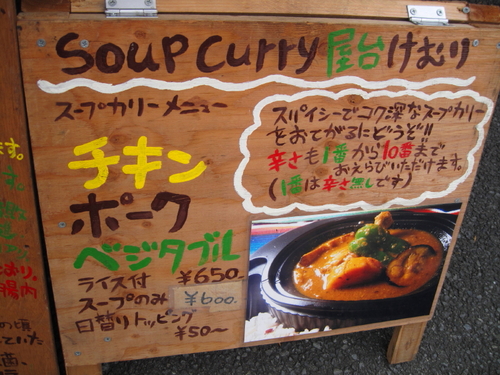 SOUP CURRY 屋台けむり
スープカリーメニュー
チキン
ポーク
ベジタブル
ライス付 ¥650
スープのみ ¥600
日替りトッピング
¥50〜
スパイシーでコク深なスープカリー
をおてがるにどうぞ!!
辛さも1番から10番まで
おえらびいただけます。
(1番は辛さ無しです)
ます。
す。
腸内
の頃